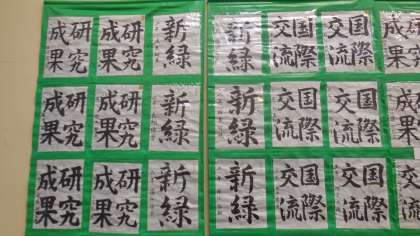 成果
国際
交流
国際
交流
新緑
新緑
研究
成果
研究
成果
成果
国際
交流
国際
交流
新緑
新緑
研究
成果
研究
成果
成果
国際
交流
国際
交流
新緑
新緑
研究
成果
研究
成果